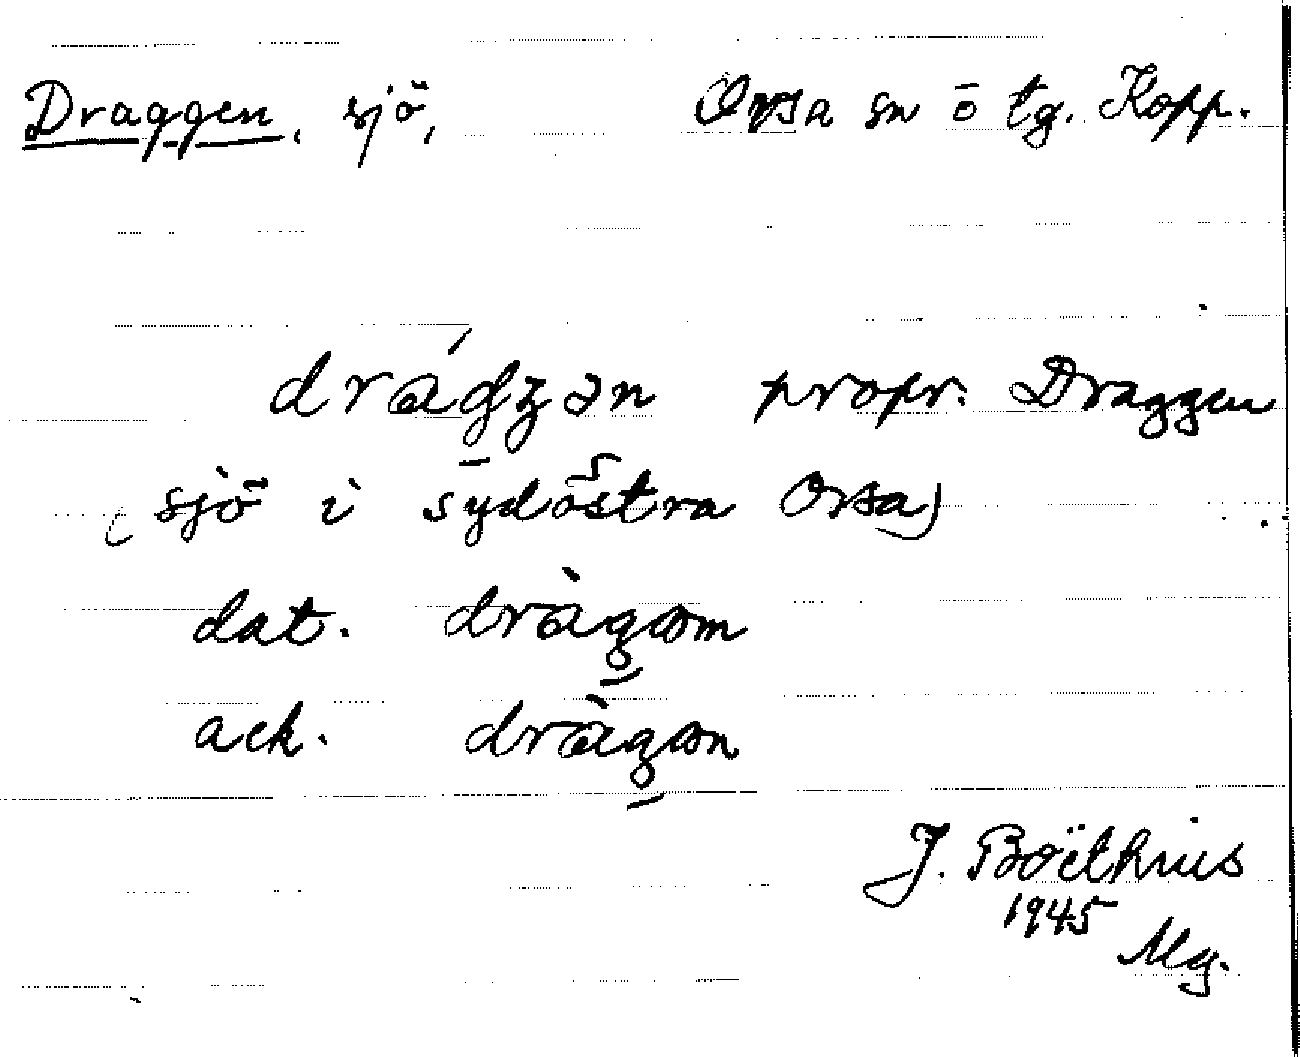 Draggen, sjö, Orsa sn ö tg. Kopp.
drág̠ʒən propr. Draggen
(sjö i sydöstra Orsa)
dat. dràg̠om
ack. dràg̠on
J. Boëthius
1945
Mg.